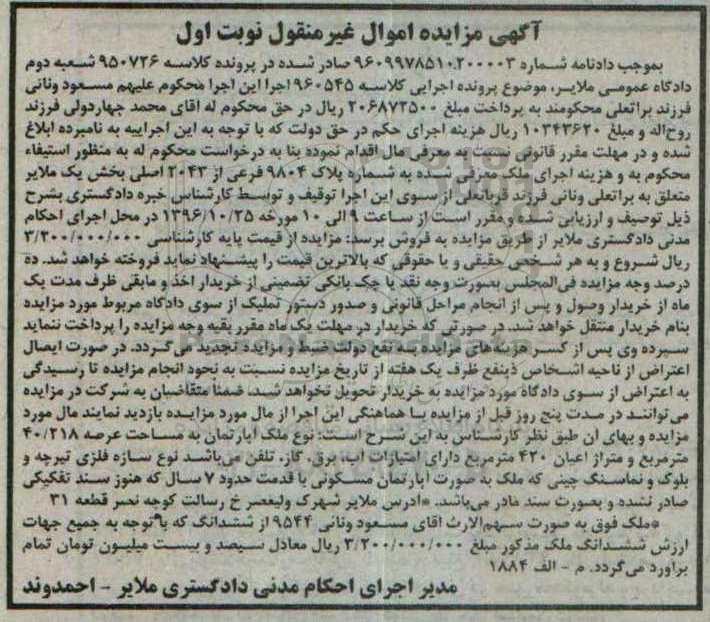 آگهی مزایده اموال غیرمنقول نوبت اول
بموجب دادنامه شماره ۹۶۰۹۹۷۸۵۱۰۲۰۰۰۰۳ صادر شده در پرونده کلاسه ۹۵۰۷۳۶ شعبه دوم
دادگاه عمومی ملایر، موضوع پرونده اجرایی کلاسه ۹۶۰۵۴۵ اجرا این اجرا محکوم علیهم مسعود ونانی
فرزند براتعلی محکومند به پرداخت مبلغ ۲۰۶۸۷۲۵۰۰ ریال در حق محکوم له اقای محمد چهاردولی فرزند
روح‌اله و مبلغ ۱۰۳۴۳۶۲۰ ریال هزینه اجرای حکم در حق دولت که با توجه به این اجراییه به نامبرده ابلاغ
شده و در مهلت مقرر قانونی نسبت به معرفی مال اقدام نموده بنا به درخواست محکوم له به منظور استیفاء
محکوم به و هزینه اجرای ملک معرفی شده به شماره پلاک ۹۸۰۴ فرعی از ۲۰۴۳ اصلی بخش یک ملایر
متعلق به براتعلی ونانی فرزند قربانعلی از سوی این اجرا توقیف و توسط کارشناس خبره دادگستری بشرح
ذیل توصیف و ارزیابی شده و مقرر است از ساعت ۹ الی ۱۰ مورخه ۱۳۹۶/۱۰/۲۵ در محل اجرای احکام
مدنی دادگستری ملایر از طریق مزایده به فروش برسد: مزایده از قیمت پایه کارشناسی ۳/۲۰۰/۰۰۰/۰۰۰
ریال شروع و به هر شخص حقیقی و یا حقوقی که بالاترین قیمت را پیشنهاد نماید فروخته خواهد شد. ده
درصد وجه مزایده فی‌المجلس بصورت وجه نقد یا چک بانکی تضمینی از خریدار اخذ و مابقی ظرف مدت یک
ماه از خریدار وصول و پس از انجام مراحل قانونی و صدور دستور تملیک از سوی دادگاه مربوط مورد مزایده
بنام خریدار منتقل خواهد شد. در صورتی که خریدار در مهلت یک ماه مقرر بقیه وجه مزایده را پرداخت ننماید
سپرده وی پس از کسر هزینه‌های مزایده به نفع دولت ضبط و مزایده تجدید می‌گردد. در صورت ایصال
اعتراض از ناحیه اشخاص ذینفع ظرف یک هفته از تاریخ مزایده نسبت به نحوه انجام مزایده تا رسیدگی
به اعتراض از سوی دادگاه مورد مزایده به خریدار تحویل نخواهد شد. ضمنا متقاضیان به شرکت در مزایده
می‌توانند در مدت پنج روز قبل از مزایده با هماهنگی این اجرا از مال مورد مزایده بازدید نمایند مال مورد
مزایده و بهای آن طبق نظر کارشناس به این شرح است: نوع ملک آپارتمان به مساحت عرصه ۴۰/۲۱۸
مترمربع و متراژ اعیان ۴۲۰ مترمربع دارای امتیازات آب، برق، گاز، تلفن می‌باشد نوع سازه فلزی تیرچه و
بلوک و نماسنگ چینی که ملک به صورت آپارتمان مسکونی با قدمت حدود ۷ سال که هنوز سند تفکیکی
صادر نشده و بصورت سند مادر می‌باشد. *ادرس ملایر شهرک ولیعصر خ رسالت کوچه نصر قطعه ۳۱
*ملک فوق به صورت سهم‌الارث اقای مسعود ونانی ۹۵۴۴ از ششدانگ که با توجه به جمیع جهات
ارزش ششدانگ ملک مذکور مبلغ ۳/۲۰۰/۰۰۰/۰۰۰ ریال معادل سیصد و بیست میلیون تومان تمام
براورد می‌گردد. م - الف ۱۸۸۴
مدیر اجرای احکام مدنی دادگستری ملایر - احمدوند